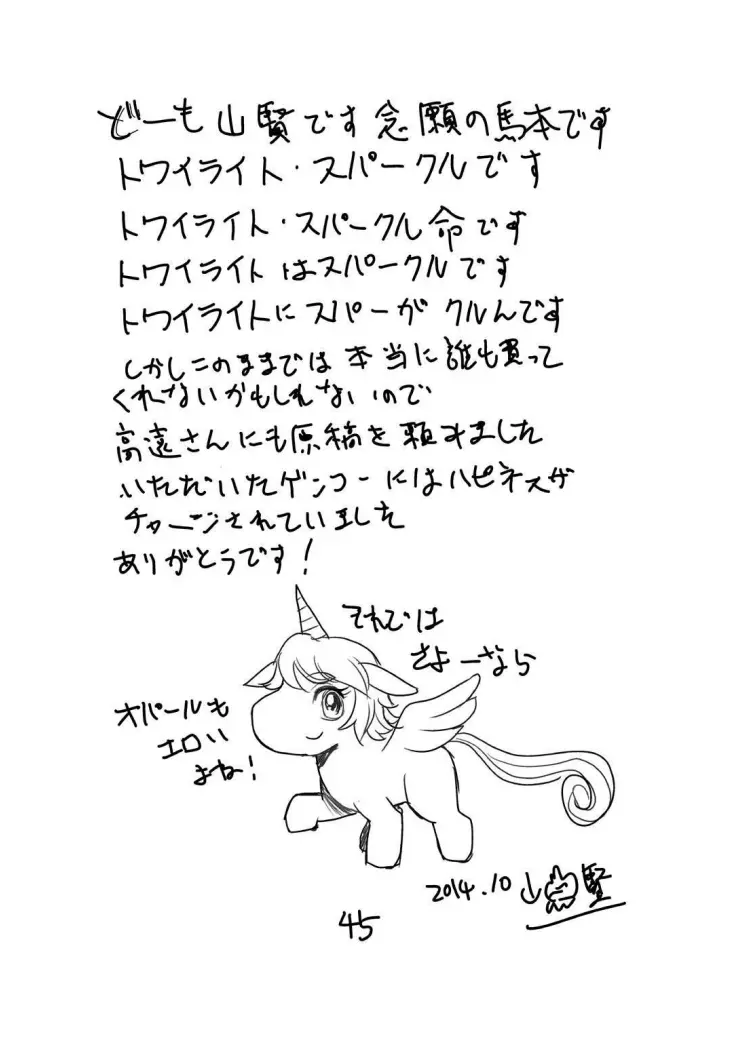 どーも山賢です念願の馬本です
トワイライト・スパークルです
トワイライト・スパークル命です
トワイライトはスパークルです
トワイライトにスパーがクルんです
しかしこのままでは本当に誰も買って
くれないかもしれないので
高遠さんにも原稿を頼みました
いただいたゲンコーにはハピネスが
チャージされていました
ありがとうです!
それでは
さよーなら
オパールも
エロい
よね!
2014.10 山賢
45